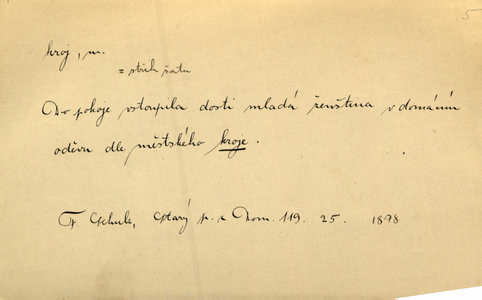 5
kroj, m.
= střih šatu
Do pokoje vstoupila dosti mladá ženština v domácím
oděvu dle městského kroje.
F. Schulz, Starý p. z Dom. 119. 25. 1878